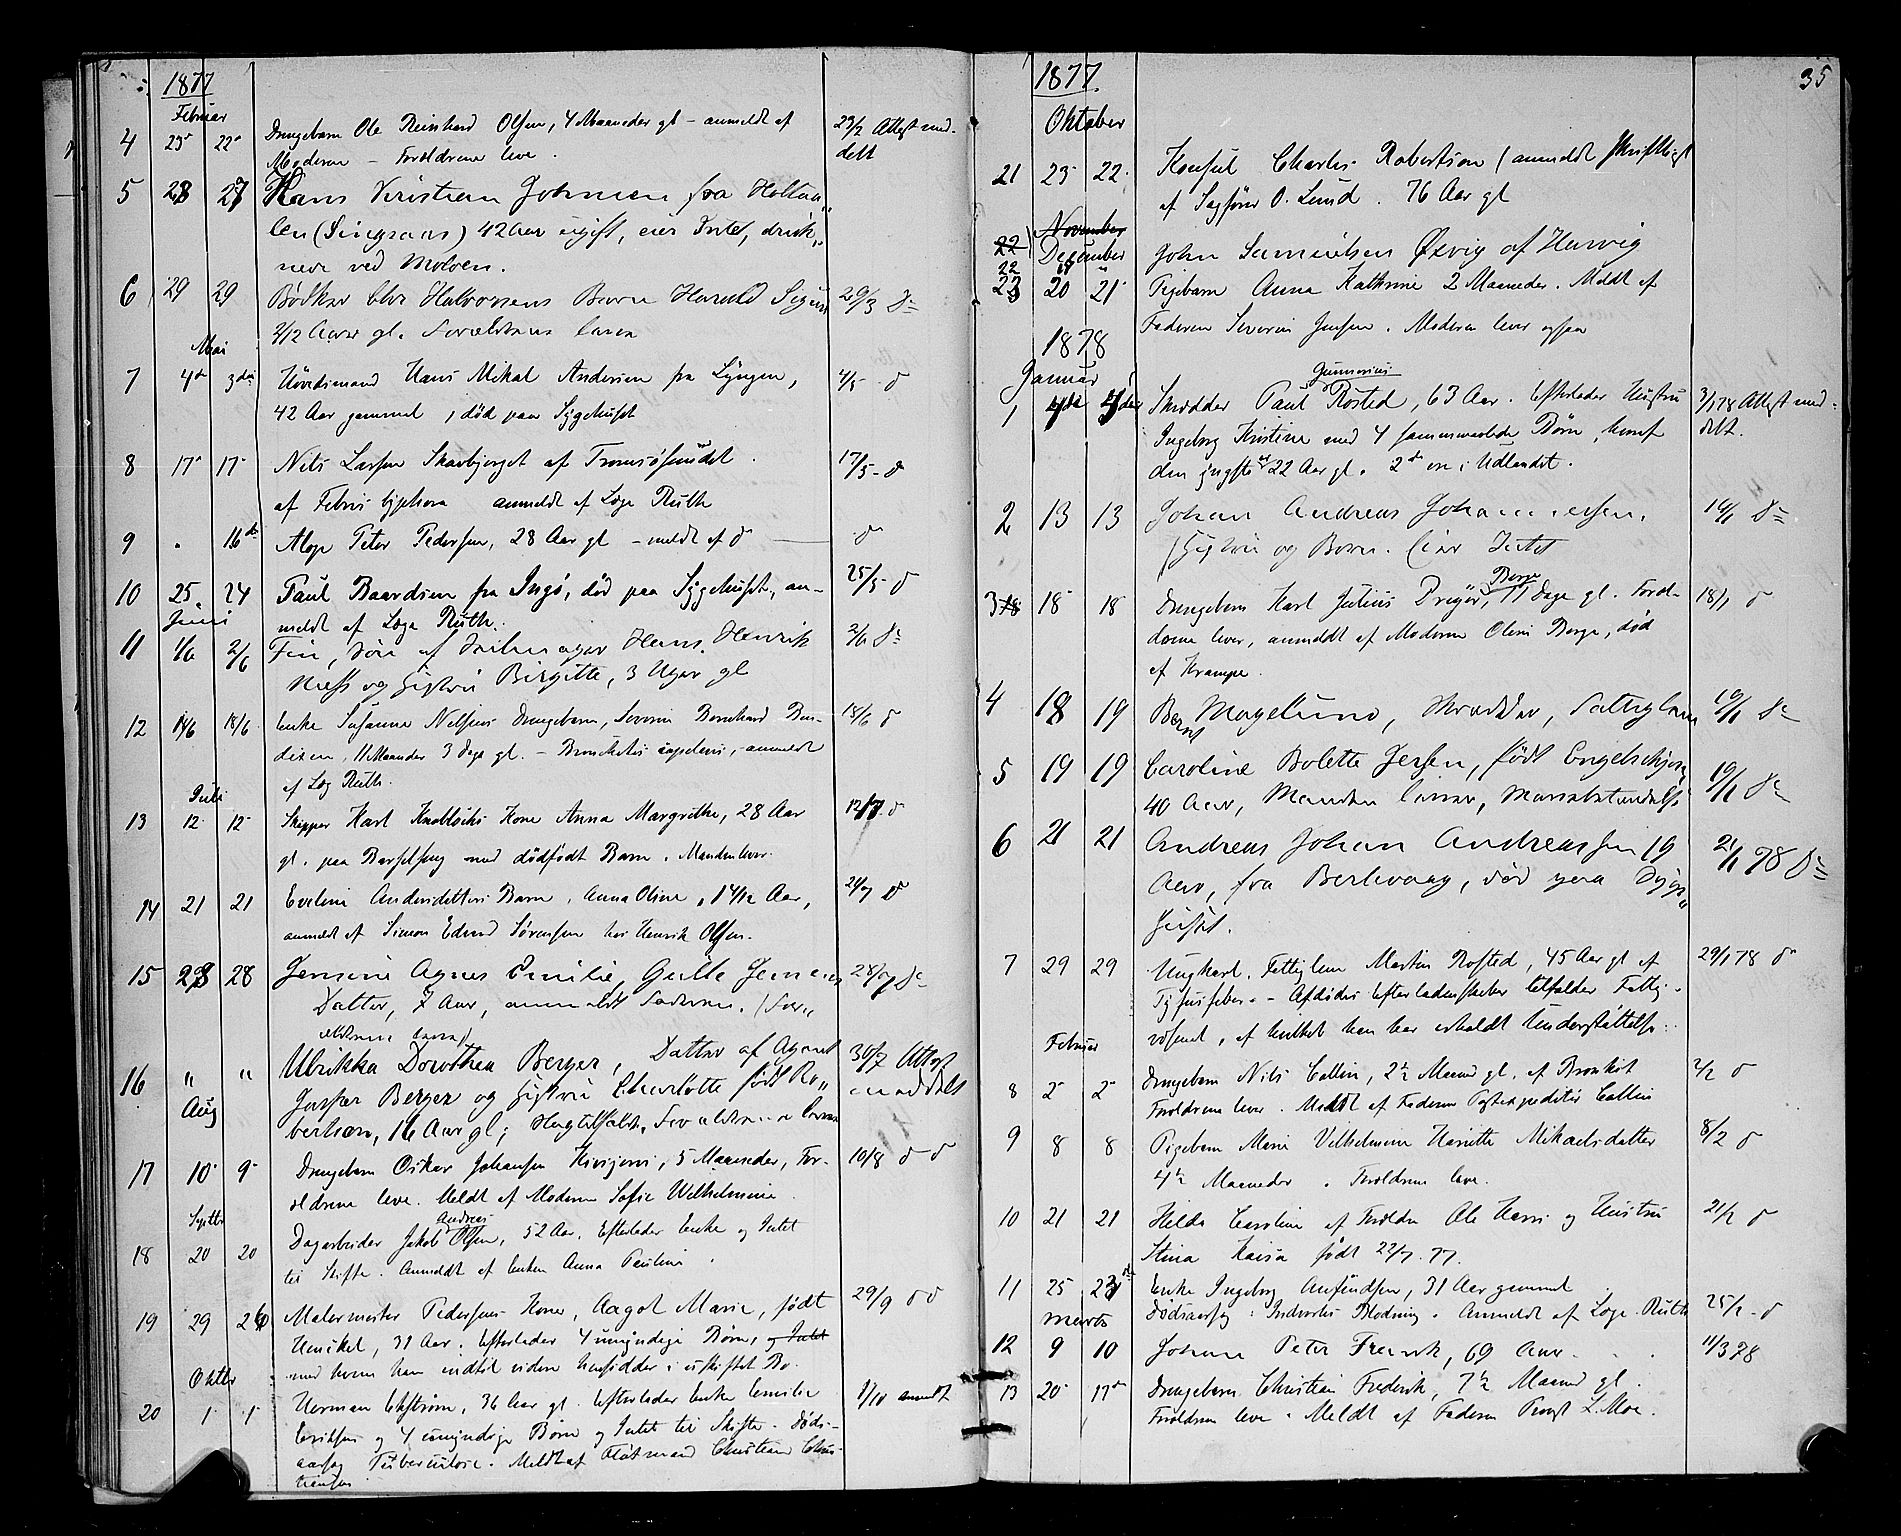 1877
Februar
4 25 22 Drengebarn Ole Reinhard Olsen, 4 Maaneder gl – anmeldt af 23/2 Attest med-
Moderen – Forældrene leve. delt
5 28 27 Hans Kristian Johnsen fra Holtaa-
len (Singsaas) 42 Aar ugift, eier Intet, druk-
nede ved Moloen.
6 29 29 Bødker Halvorsens Barn Harald Sigurd 29/3 do
3/12 Aar gl. Forældrene leve
Mai
7 4de 3die Hans Mikal Andersen fra Lyngen, 4/5 do
42 Aar gammel, død paa Sygehuset
8 17 17 Nils Larsen Skarbjerget af Tromsøsundet. 17/5 - do
af Febris typhora anmeldt af Læge Ruth
9 " 16de Peter Pedersen, 28 Aar gl – meldt af do do
10 25 24 Paul Baardsen fra Ingø, død paa Sygehuset, an- 25/5 do
Juni meldt af Læge Ruth.
11 1/6 2/6 Søn af Hans Henrik 2/6 do
og Hustru Birgitte, 3 Uger gl
12 18/6 18/6 Enke Susanna Nilsens Drengebarn, Severin Bernhard Ben- 18/6 do
dixen, 11 Maaneder 3 Dage gl. – anmeldt
af Læg Ruth.
Juli
13 12 12 Skipper Karl Kone Anna Margrethe, 28 Aar 12/7 do
gl. paa Barselseng med dødfødt Barn. Manden lever.
14 21 21 Eveline Andersdatters Barn, Anna Oline, 1 4/12 Aar, 21/7 do
anmeldt af Simon Edvard Sørensen hos Henrik Olsen.
15 28 28 Jensine Agnes Emilie, Jensens 28/7 do
Datter, 7 Aar, anmeldt Faderen. (For-
ældrene leve)
16 " " Ulrikka Dorothea Berger, Datter af Agent 30/7 Attest
Aug Jesper Berger og Hustru Charlotte født Ro- meddelt
bertson, 16 Aar gl; Forældrene lever
17 10 9 Drengebarn Oskar Johansen, 5 Maaneder, For- 10/8 do do
ældrene leve. Meldt af Moderen Sofie Wilhelmine.
Septbr Andreas
18 20 20 Dagarbeider Jakob Olsen, 52 Aar. Efterlader Enke og Intet
til Skifte. Anmeldt af Enken Anna Pauline.
19 29 26 Malermester Pedersens Kone, Aagot Marie, født 29/9 do do
31 Aar. Efterlader 4 umyndige Børn, og Intet
med hvem han indtil videre hensidder i uskiftet Bo.
Oktbr
20 1 1 Herman Ekstrøm, 36 Aar gl. Efterlader Enke Emilie 1/10 anmeldt
Eriksen og 4 umyndige Børn og Intet til Skifte. Døds-
aarsag Tuberculose. Meldt af Fløtmand Christian Chris-
tiansen
1877 35
Oktober
21 23 22 Konsul Charles Robertson (anmeldt skriftligt
af Sagfører O. Lund. 76 Aar gl
November
22 December John Samuelsen Øsvig af Hansvig
22 18 "
23 20 21 Pigebarn Anna Kathrine 2 Maaneder. Meldt af
Faderen Severin Jensen. Moderen lever ogsaa
1878
Januar Gunnerius
1 4de Skrædder Paul Rosted, 63 Aar. Efterlader Hustru 3/1 78 Attest med-
Ingeborg Kristine med 4 sammenavlede Børn, hvoraf delt.
den yngste er 22 Aar gl. 2de ere i Udlandet.
2 13 13 Johan Andreas Johannessen, 14/1 do
Hustru og Børn. Eier Intet
Berge
3 18 18 18 Drengebarn Karl Julius Dreyer, 11 Dage gl. Foræl- 18/1 do
drene lever, anmeldt af Moderen Oline Berge, død
af Krampe.
4 18 19 Bernt Magelund, Skrædder, Fattiglem 19/1 do
5 19 19 Caroline Bolette Jessen, født 19/1 do
40 Aar, Manden lever,
6 21 21 Andreas Johan Andreassen 19 21/1 78 do
Aar, fra Berlevaag, død paa Syge-
huset.
7 29 29 Ungkarl, Fattiglem Martin Rosted, 45 Aar gl af 29/1 78 do
Tyfusfeber – Afdødes Efterladenskaber tilfalder Fattig-
væsenet, af hvilket han har erholdt Understøttelse.
Februar
8 2 2 Drengebarn Nils Collin, 2½ Maaned gl. af Bronkit 2/2 do
Forældrene lever. Meldt af Faderen Postexpeditør Collin
9 8 8 Pigebarn Marie Vilhelmine Henriette Mikaelsdatter 8/2 do
4½ Maaneder. Forældrene leve.
10 21 21 Hilda Caroline af Forældre Ole Hansen og Hustru 21/2 do
Stina Kaisa født 22/7. 77.
11 25 23de Enke Ingeborg Anfindsen, 31 Aar gammel
Marts Dødsaarsag: Indvortes Blødning. Anmeldt af Læge Ruth 25/2 - do
12 9 10 Johan Peter Frank, 69 Aar. 11/3 78
13 20 17de Drengebarn Christian Frederik, 7½ Maaned gl.
Forældrene leve. Meldt af Faderen Provst L. Moe.